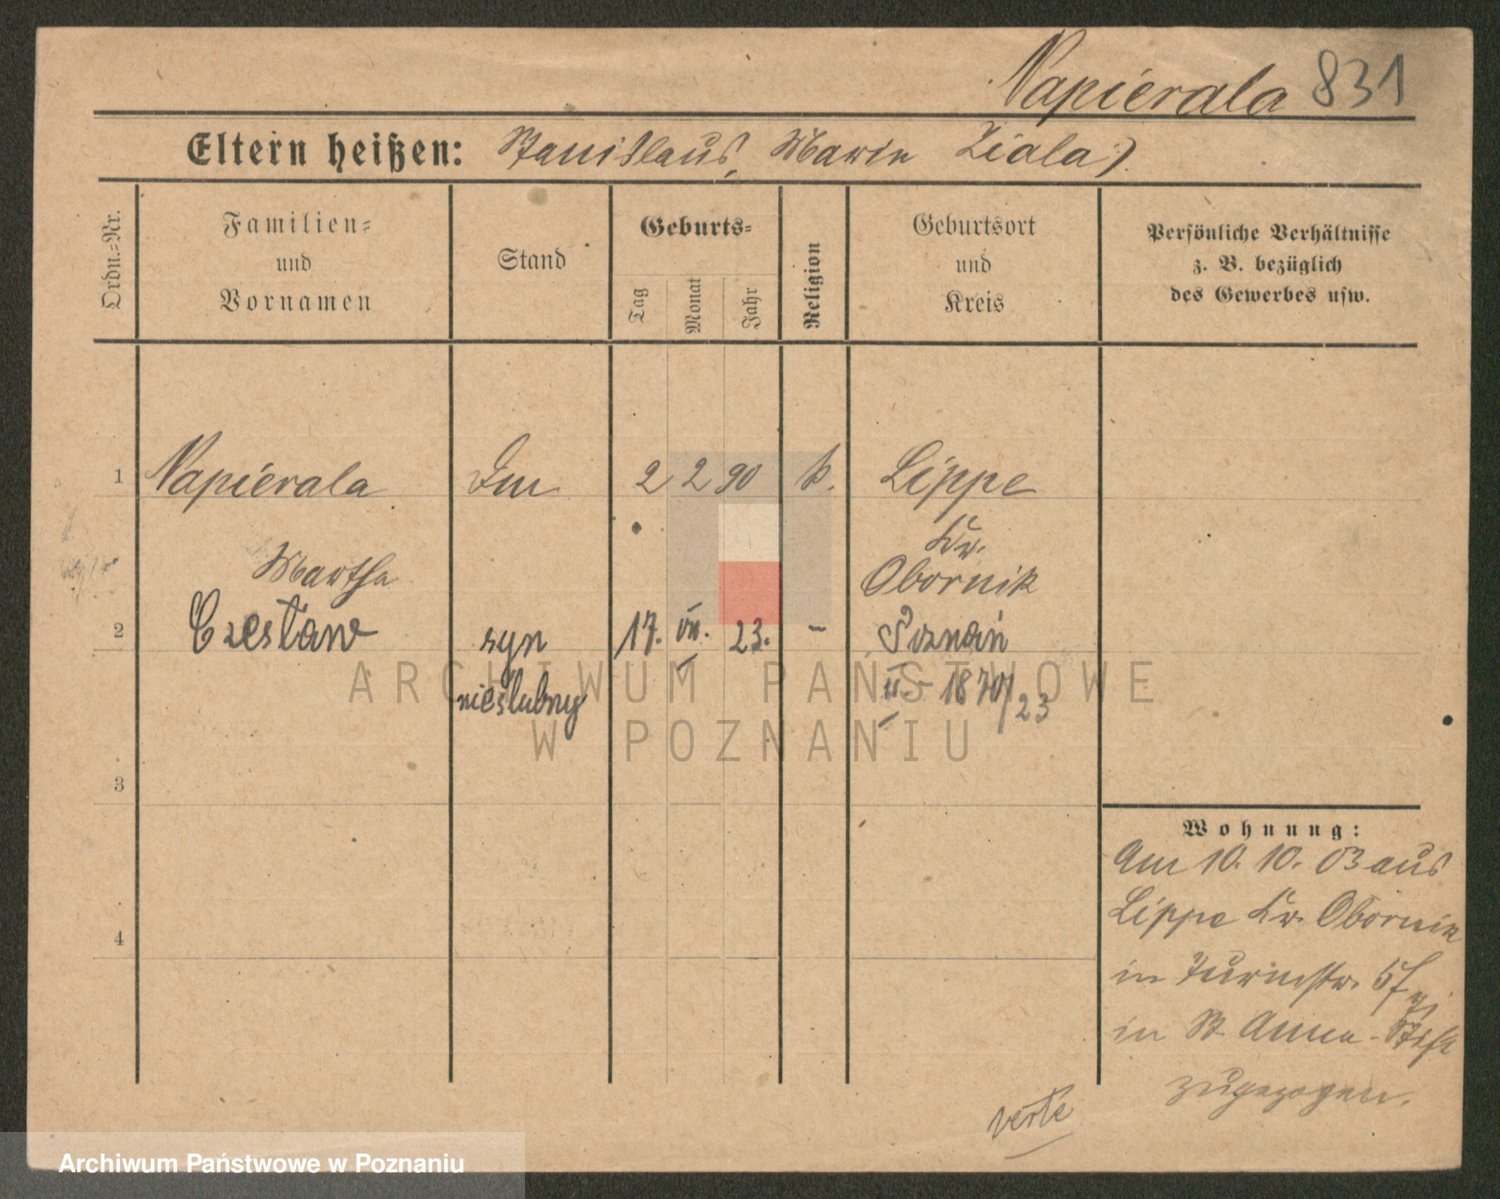 Napierala 831
Eltern heißen: Stanislaus, Maria Ziala)
Ordn.=Nr.
Familien=
und
Vornamen
Stand
Geburts=
Tag
Monat
Jahr
Religion
Geburtsort
und
Kreis
Persönliche Verhältnisse
z. B. bezüglich
des Gewerbes usw.
1 Napierala 2 2 90 k. Lippe
Kr.
Martha Obornik
2 Czesław syn 17. VII. 23. – Poznań
nieślubny II – 1870/23
ARCHIWUM PAŃSTWOWE
W POZNANIU
3
Wohnung:
Am 10. 10. 03 aus
Lippe Kr. Obornik
4
in Turmstr. 5
in St. Anna-Stift
zugezogen.
verte
Archiwum Państwowe w Poznaniu